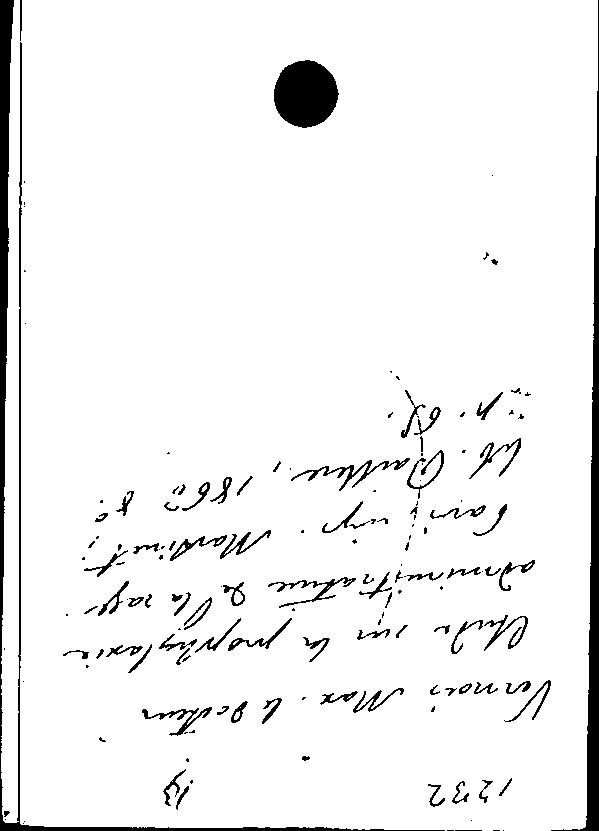 1232
Vernois Max. le Docteur
Etude sur la prophylaxie
administrative de la rage
Paris, imp. Martinet,
lib. Baillere, 1863 8º
p. 68.